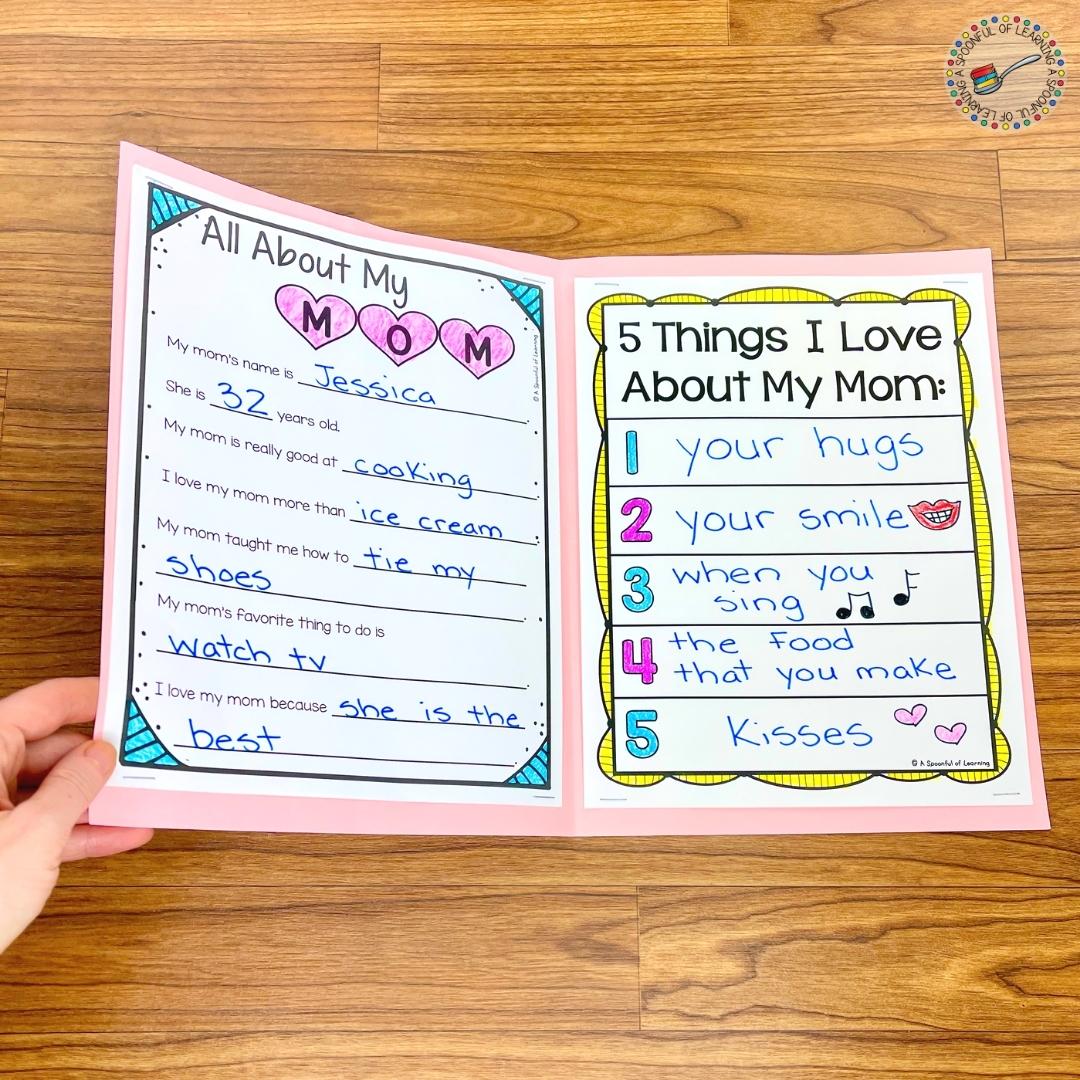 A SPOONFUL OF LEARNING A SPOONFUL OF LEARNING
All About My
MOM
© A Spoonful of Learning
My mom's name is Jessica.
She is 32 years old.
My mom is really good at cooking.
I love my mom more than ice cream.
My mom taught me how to tie my
shoes.
My mom's favorite thing to do is
watch tv.
I love my mom because she is the
best.
5 Things I Love
About My Mom:
1 your hugs
2 your smile
3 when you
sing
4 the food
that you make
5 Kisses
© A Spoonful of Learning